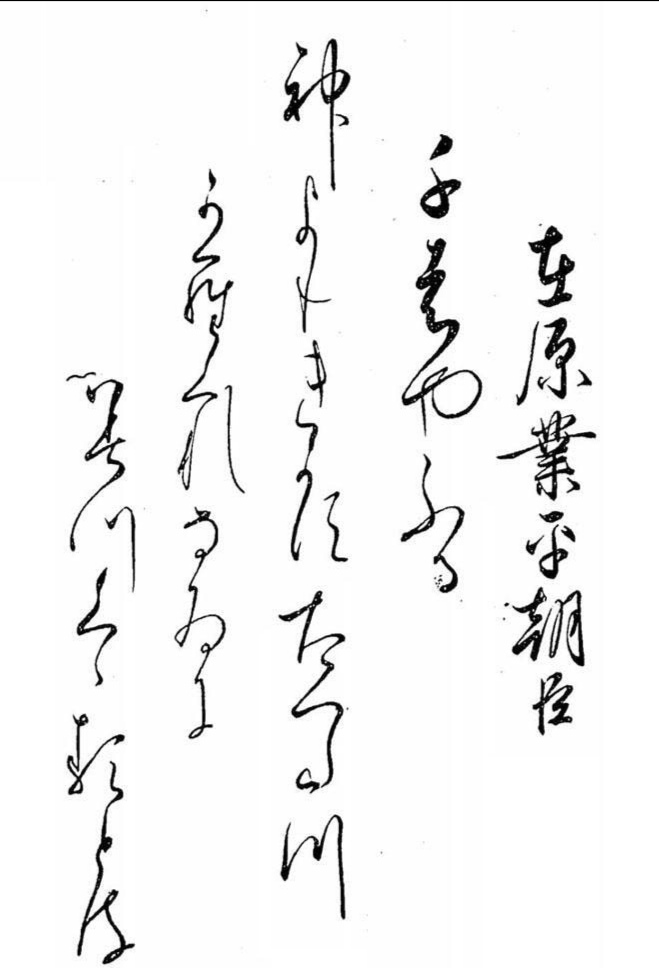 在原業平朝臣
千はやふる
神よもきかすたつた川
からくれなゐに
みつくゝるとは